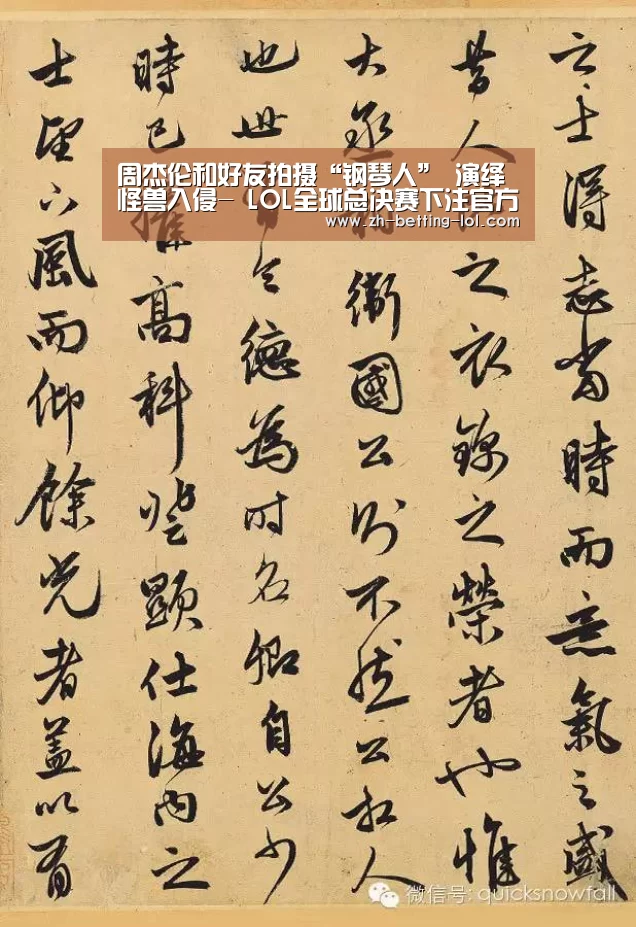 周杰伦和好友拍摄“钢琴人” 演绎
怪兽入侵- LOL全球总决赛下注官方
www.zh-betting-lol.com
之士得志當時而意氣之盛
昔人之衣錦之榮者也惟
大丞衛國公則不然公相人
也世令德為時名卿自公少
時已擢高科登顯仕海內之
士望下風而仰餘光者蓋以有
微信号: quicksnowfall